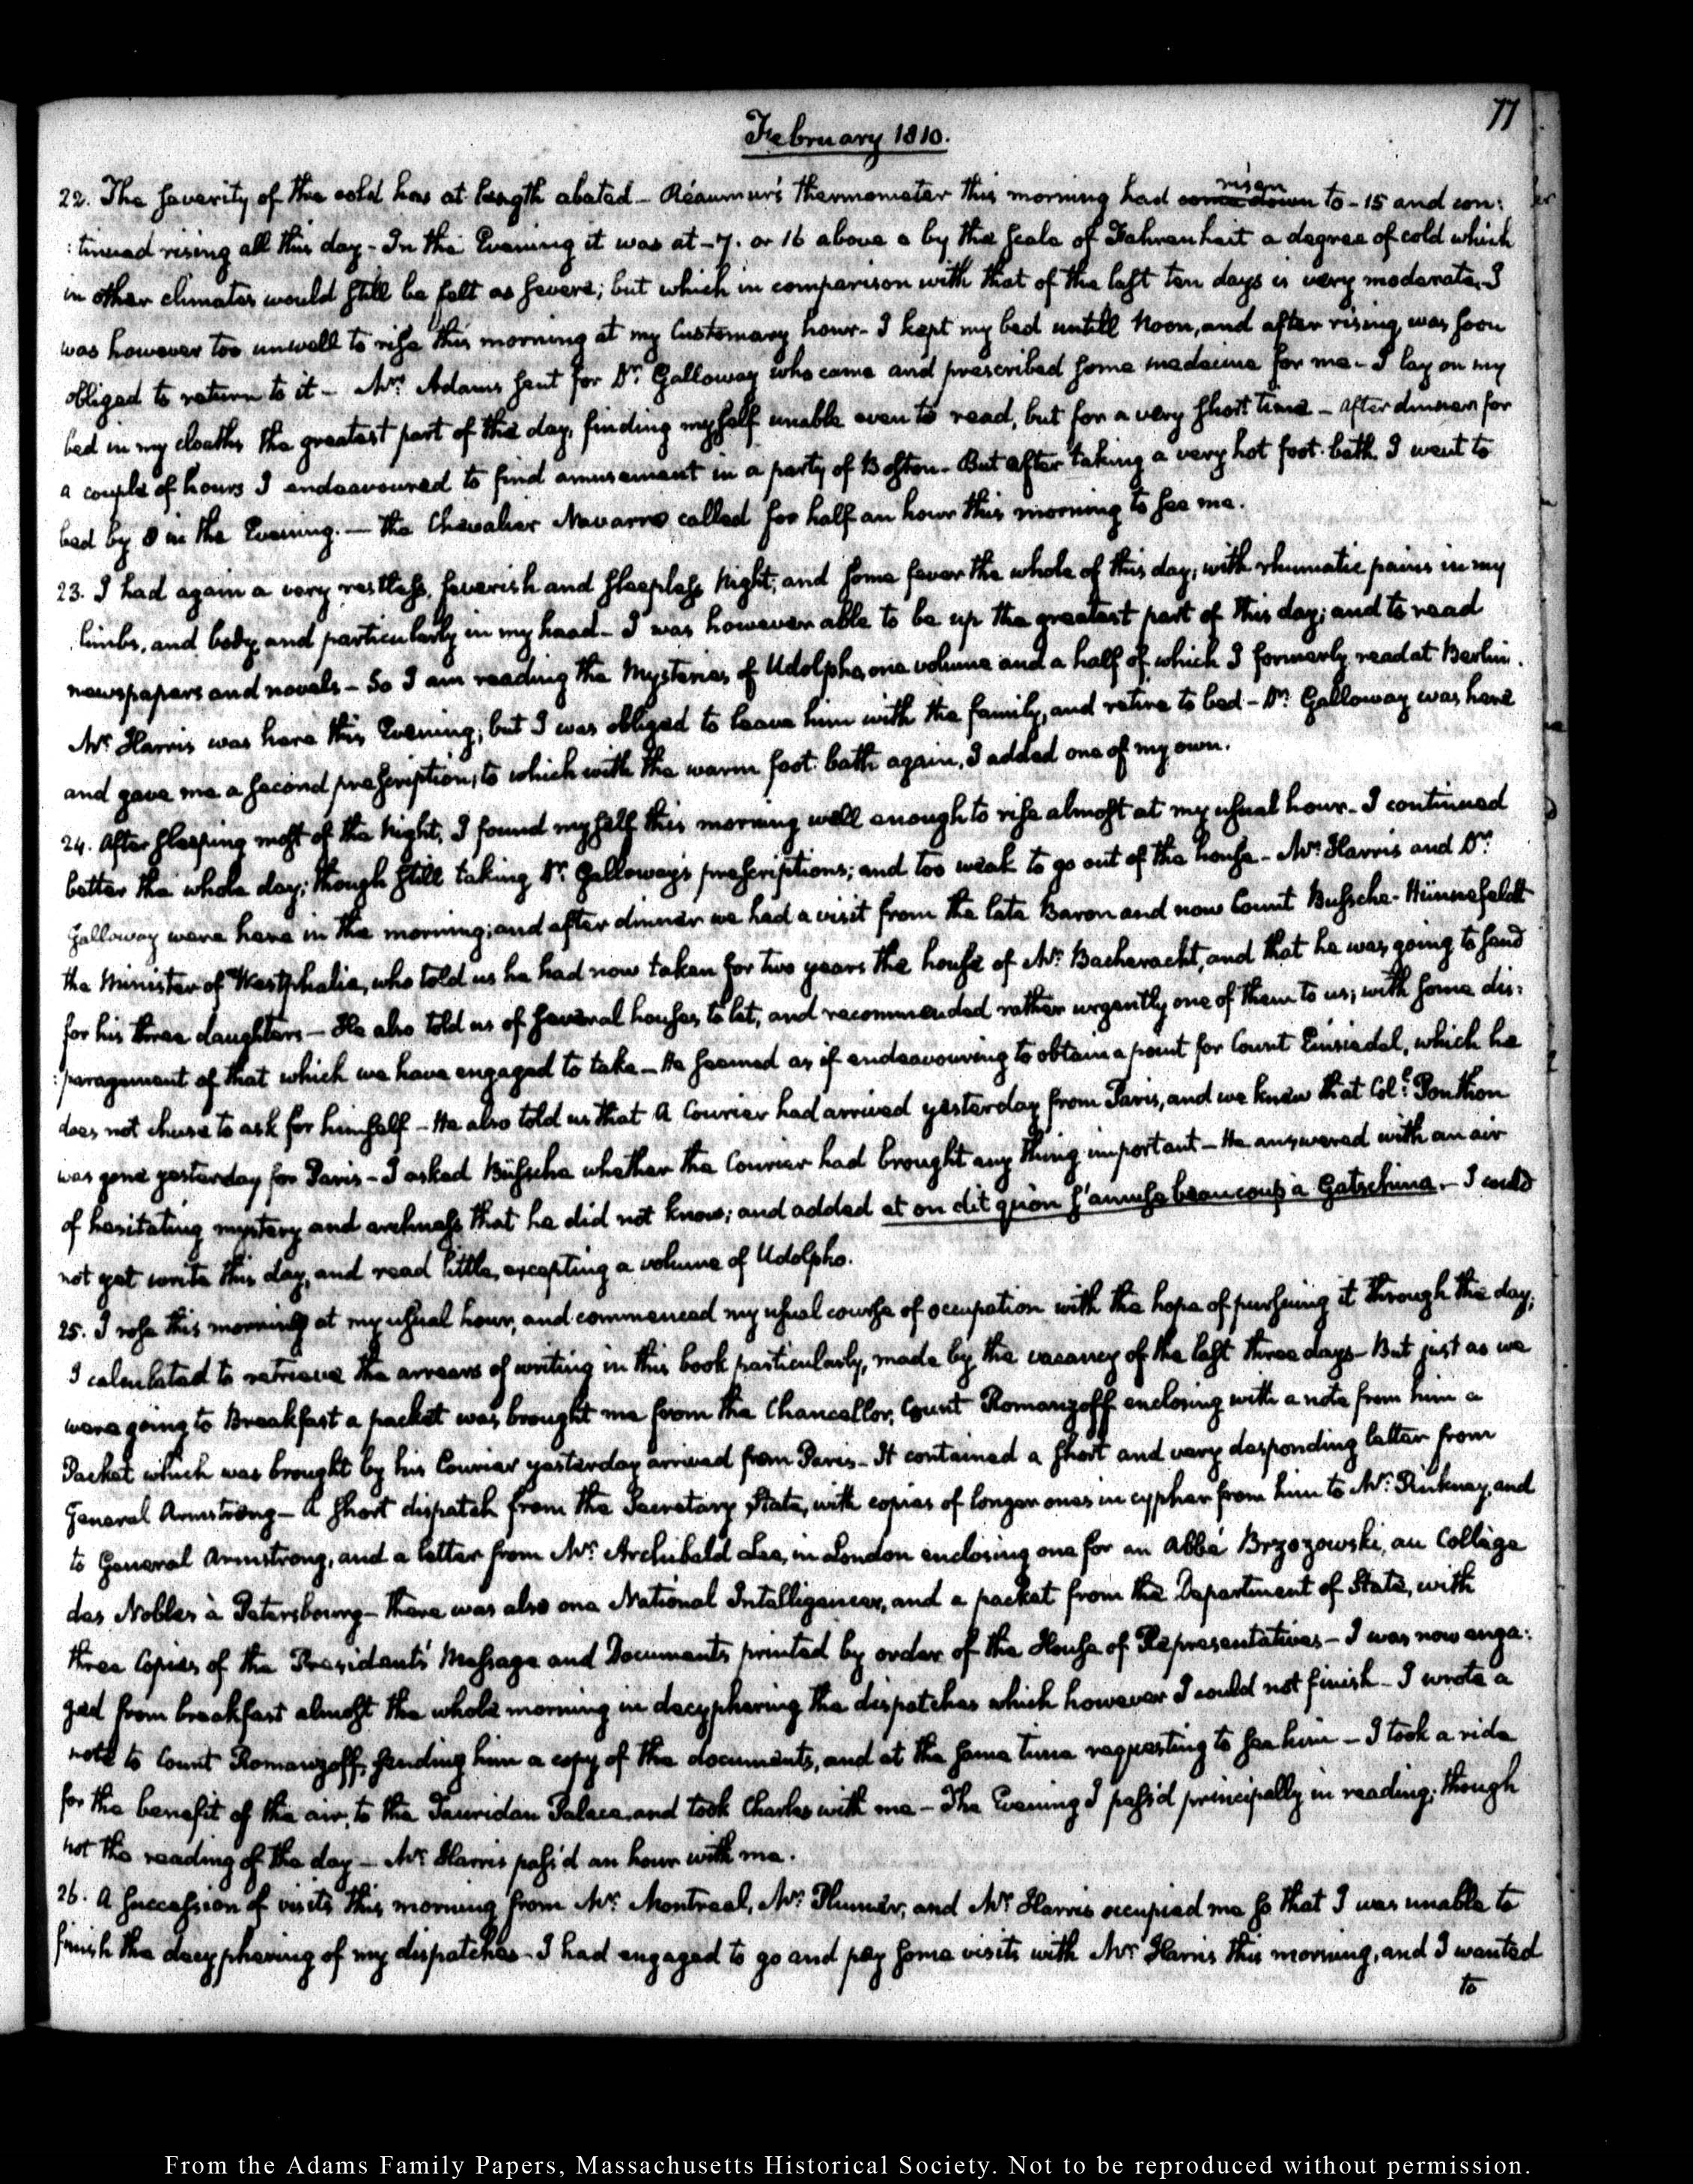 77
February 1810.
22. The severity of the cold has at length abated - Réaumur's thermometer this morning had come down risen to - 15 and con:
:tinued rising all this day - In the Evening it was at - 7. or 16 above 0 by the scale of Fahrenheit a degree of cold which
in other climates would still be felt as severe; but which in comparison with that of the last ten days is very moderate. I
was however too unwell to rise this morning at my customary hour - I kept my bed untill Noon, and after rising was soon
obliged to return to it - Mrs. Adams sent for Dr. Galloway who came and prescribed some medecine for me - I lay on my
bed in my cloaths the greatest part of the day, finding myself unable even to read, but for a very short time - after dinner for
a couple of hours I endeavoured to find amusement in a party of Boston - But after taking a very hot foot-bath I went to
bed by 8 in the Evening. — The Chevalier Navarro called for half an hour this morning to see me.
23. I had again a very restless, feverish and sleepless Night, and some fever the whole of this day, with rhumatic pains in my
limbs, and body, and particularly in my head - I was however able to be up the greatest part of this day; and to read
newspapers and novels - So I am reading the Mysteries of Udolpho, one volume and a half of which I formerly read at Berlin.
Mr. Harris was here this Evening; but I was obliged to leave him with the family, and retire to bed - Dr. Galloway was here
and gave me a second prescription, to which with the warm foot-bath again, I added one of my own.
24. After sleeping most of the Night, I found myself this morning well enough to rise almost at my usual hour - I continued
better the whole day; though still taking Dr. Galloway's prescriptions; and too weak to go out of the house - Mr. Harris and Dr.
Galloway were here in the morning; and after dinner we had a visit from the late Baron and now Count Bussche-Hünnefeldt
the Minister of Westphalia, who told us he had now taken for two years the house of Mr. Bacheracht, and that he was going to send
for his three daughters - He also told us of several houses to let, and recommended rather urgently one of them to us; with some dis:
:paragement of that which we have engaged to take - He seemed as if endeavouring to obtain a point for Count Einsiedel, which he
does not chuse to ask for himself - He also told us that a Courier had arrived yesterday from Paris, and we knew that Coll. Ponthon
was gone yesterday for Paris - I asked Büssche whether the Courier had brought any thing important - He answered with an air
of hesitating mystery and archness that he did not know; and added et on dit qu'on s'amuse beaucoup à Gatschina. - I could
not yet write this day, and read little, excepting a volume of Udolpho.
25. I rose this morning at my usual hour, and commenced my usual course of occupation with the hope of pursuing it through the day;
I calculated to retrieve the arrears of writing in this book particularly, made by the vacancy of the last three days - But just as we
were going to Breakfast a packet was brought me from the Chancellor, Count Romanzoff enclosing with a note from him a
Packet which was brought by his Courier yesterday arrived from Paris - It contained a short and very desponding letter from
General Armstrong - a short dispatch from the Secretary State, with copies of longer ones in cypher from him to Mr. Pinkney, and
to General Armstrong, and a letter from Mr. Archibald Lee, in London enclosing one for an Abbé Brzozowski, au Collège
des Nobles à Petersbourg - There was also one National Intelligencer, and a packet from the Department of State, with
three Copies of the President's Message and Documents printed by order of the House of Representatives - I was now enga:
ged from breakfast almost the whole morning in decyphering the dispatches which however I could not finish - I wrote a
note to Count Romanzoff, sending him a copy of the documents, and at the same time requesting to see him - I took a ride
for the benefit of the air, to the Tauridan Palace, and took Charles with me - The Evening I pass'd principally in reading; though
not the reading of the day - Mr. Harris pass'd an hour with me.
26. A succession of visits this morning from Mr. Montreal, Mr. Plummer, and Mr. Harris occupied me so that I was unable to
finish the decyphering of my dispatches - I had engaged to go and pay some visits with Mr. Harris this morning, and I wanted
to
From the Adams Family Papers, Massachusetts Historical Society. Not to be reproduced without permission.